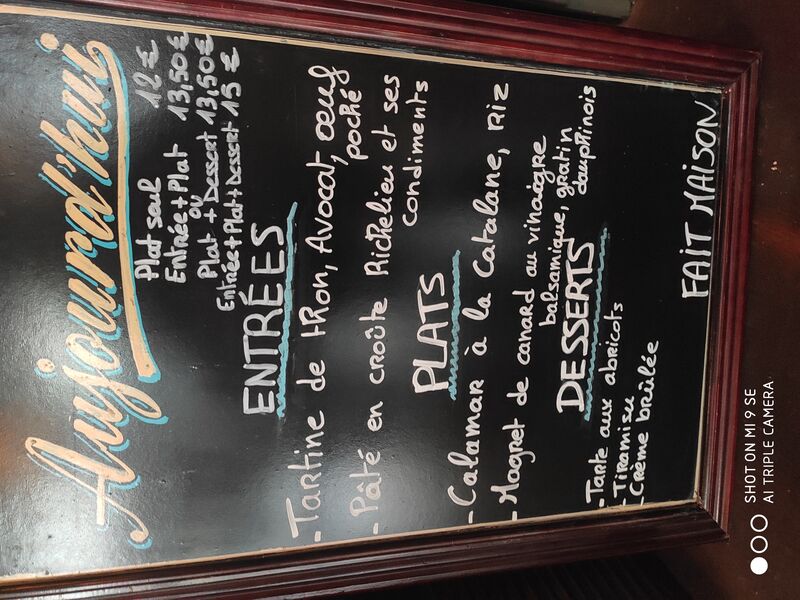 Aujourd'hui
Plat seul 12 €
Entrée + Plat 13,50 €
ou
Plat + Dessert 13,50 €
Entrée + Plat + Dessert 15 €
ENTRÉES
- Tartine de thon, Avocat, œuf
poché
- Pâté en croûte Richelieu et ses
condiments
PLATS
- Calamar à la Catalane, Riz
- Magret de canard au vinaigre
balsamique, gratin
dauphinois
DESSERTS
- Tarte aux abricots
- Tiramisu
- Crème brûlée
FAIT MAISON
SHOT ON MI 9 SE
AI TRIPLE CAMERA